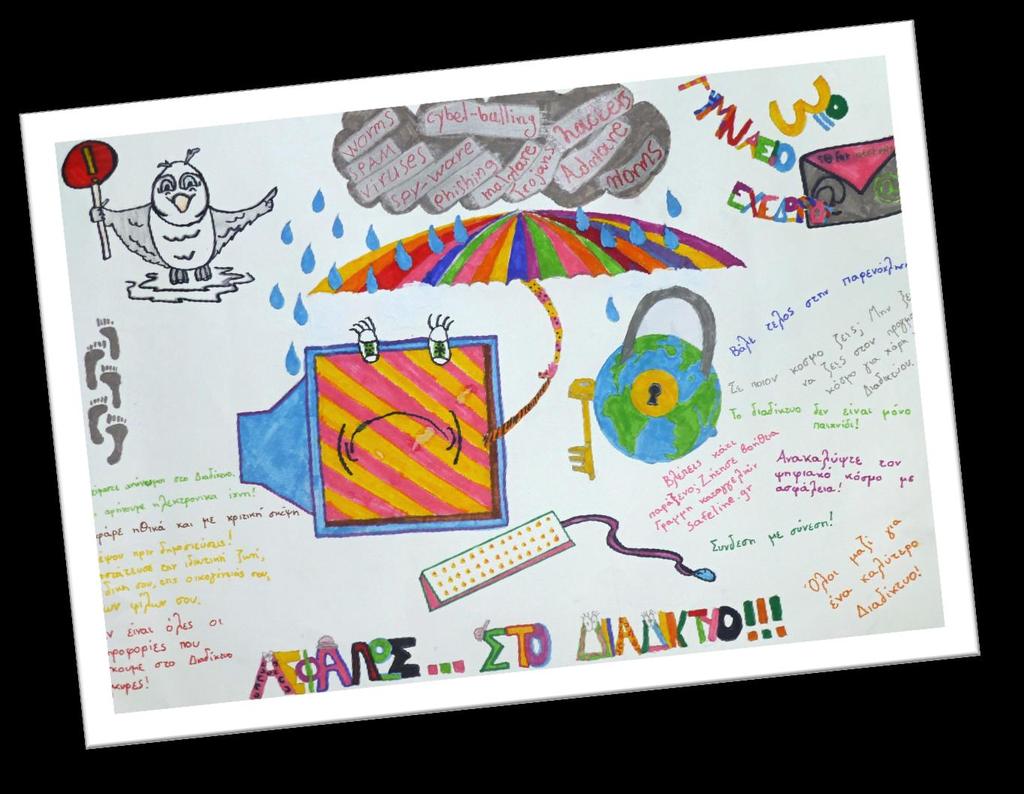 worms
SPAM
viruses
spy-ware
phishing
cybel-bulling
malware
Trojans
hackers
Adware
Worms
3ο
ΓΥΜΝΑΣΙΟ
ΕΧΕΔΩΡΟΥ
Βάλε τέλος στην παρενόχληση
Σε ποιον κόσμο ζεις; Μην ξε
να ζεις στον πραγμ
κόσμο για χάρη
Διαδικτύου.
Το διαδίκτυο δεν είναι μόνο
παιχνίδι!
Βλέπεις κάτι
παράξενο; Ζήτησε βοήθεια
Γραμμή καταγγελιών
safeline.gr
Ανακαλύψτε τον
ψηφιακό κόσμο με
ασφάλεια!
Σύνδεση με σύνεση!
Όλοι μαζί για
ένα καλύτερο
Διαδίκτυο!
είμαστε ανώνυμοι στο Διαδίκτυο.
αφήνουμε ηλεκτρονικά ίχνη!
φάρε ηθικά και με κριτική σκέψη
έψου πριν δημοσιεύσεις!
οστάτευσε την ιδιωτική ζωή,
δική σου, της οικογένειάς σου,
ων φίλων σου.
ν είναι όλες οι
ηροφορίες που
κουμε στο Διαδίκτυο
κυρες!
ΑΣΦΑΛΩΣ... ΣΤΟ ΔΙΑΔΙΚΤΥΟ!!!